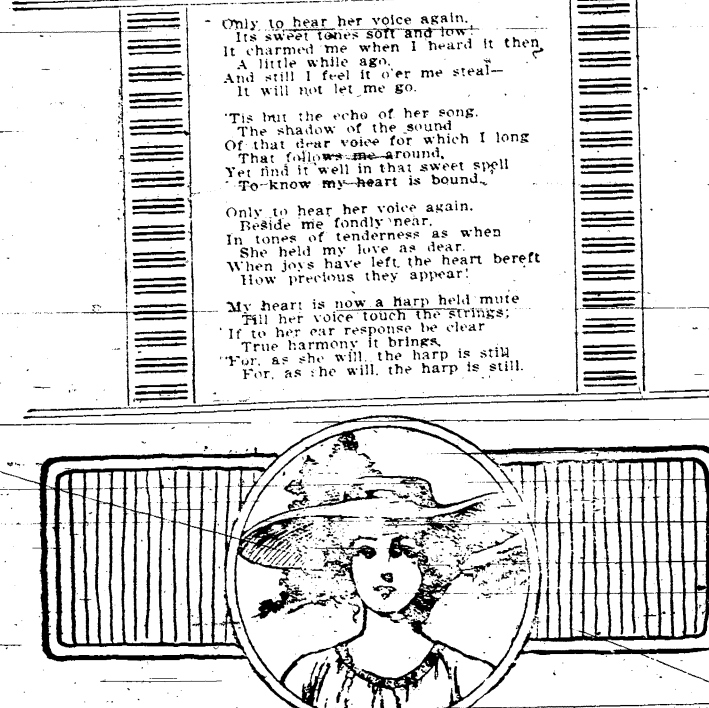 Only to hear her voice again,
Its sweet tones soft and low!
It charmed me when I heard it then,
A little while ago,
And still I feel it o'er me steal—
It will not let me go.
'Tis but the echo of her song,
The shadow of the sound
Of that dear voice for which I long
That follows me around,
Yet find it well in that sweet spell
To know my heart is bound.
Only to hear her voice again,
Beside me fondly near,
In tones of tenderness as when
She held my love as dear.
When joys have left the heart bereft
How precious they appear!
My heart is now a harp held mute
Till her voice touch the strings;
If to her ear response be clear
True harmony it brings,
For, as she will, the harp is still
For, as she will, the harp is still.